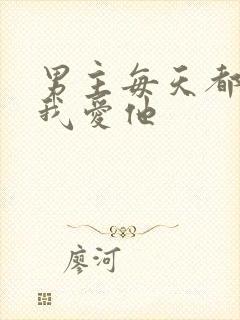 男主每天都
我爱他
廖河